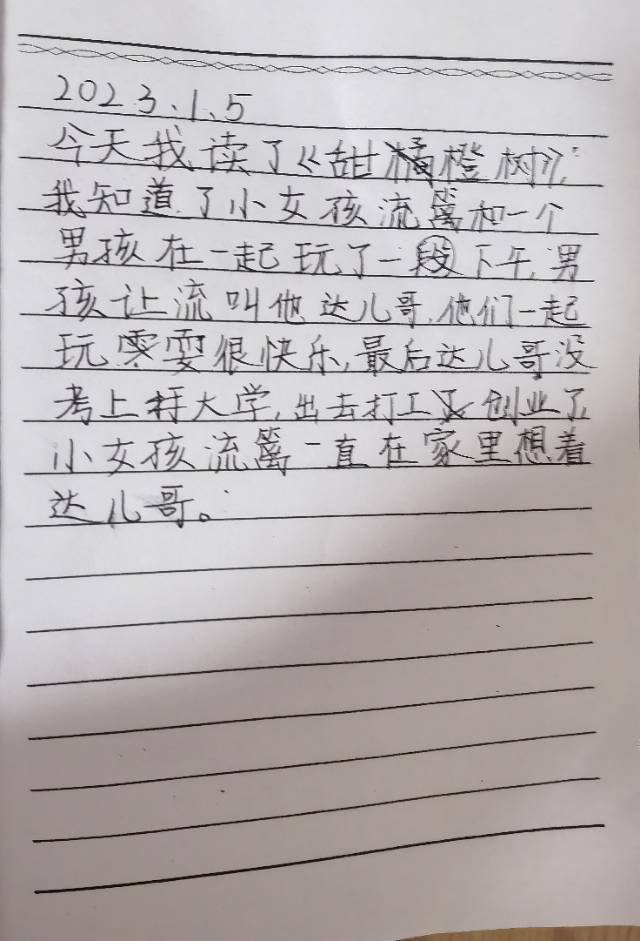 2023.1.5
今天我读了《甜橙树》,
我知道了小女孩流篱和一个
男孩在一起玩了一段下午,男
孩让流叫他达儿哥,他们一起
玩零耍很快乐,最后达儿哥没
考上大学,出去打工创业了,
小女孩流篱一直在家里想着
达儿哥。